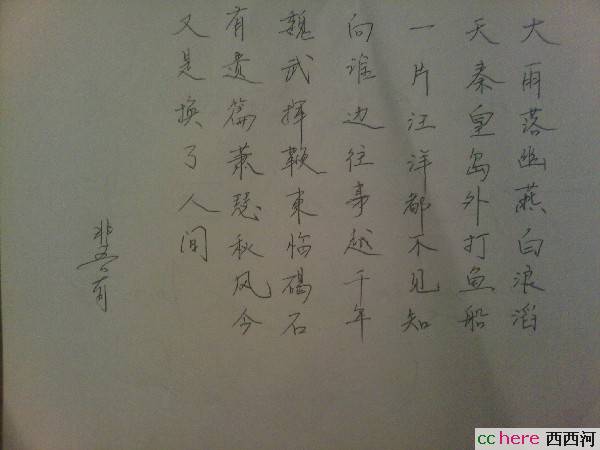 大雨落幽燕白浪滔
天秦皇岛外打鱼船
一片汪洋都不见知
向谁边往事越千年
魏武揮鞭東临碣石
有遗篇萧瑟秋风今
又是换了人间
cchere 西西河